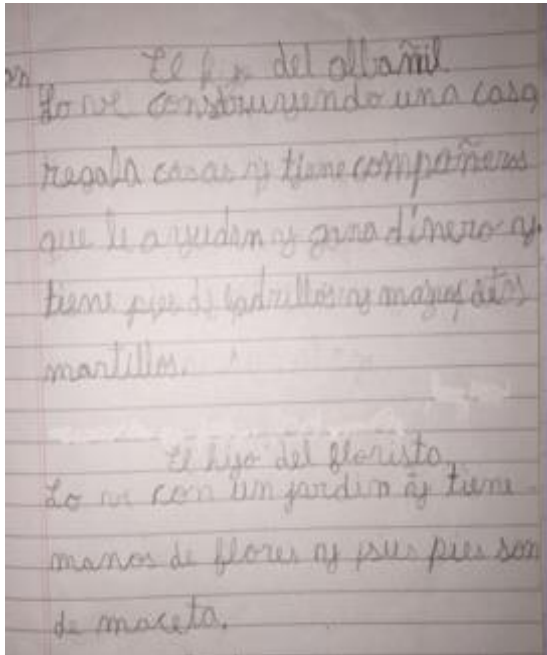 El hijo del albañil
Lo ve construyendo una casa
regala casas y tiene compañeros
que le ayudan y gana dinero y
tiene pies de ladrillos y manos de
martillos.
El hijo del floristo
Lo ve con un jardin y tiene
manos de flores y sus pies son
de maceta.